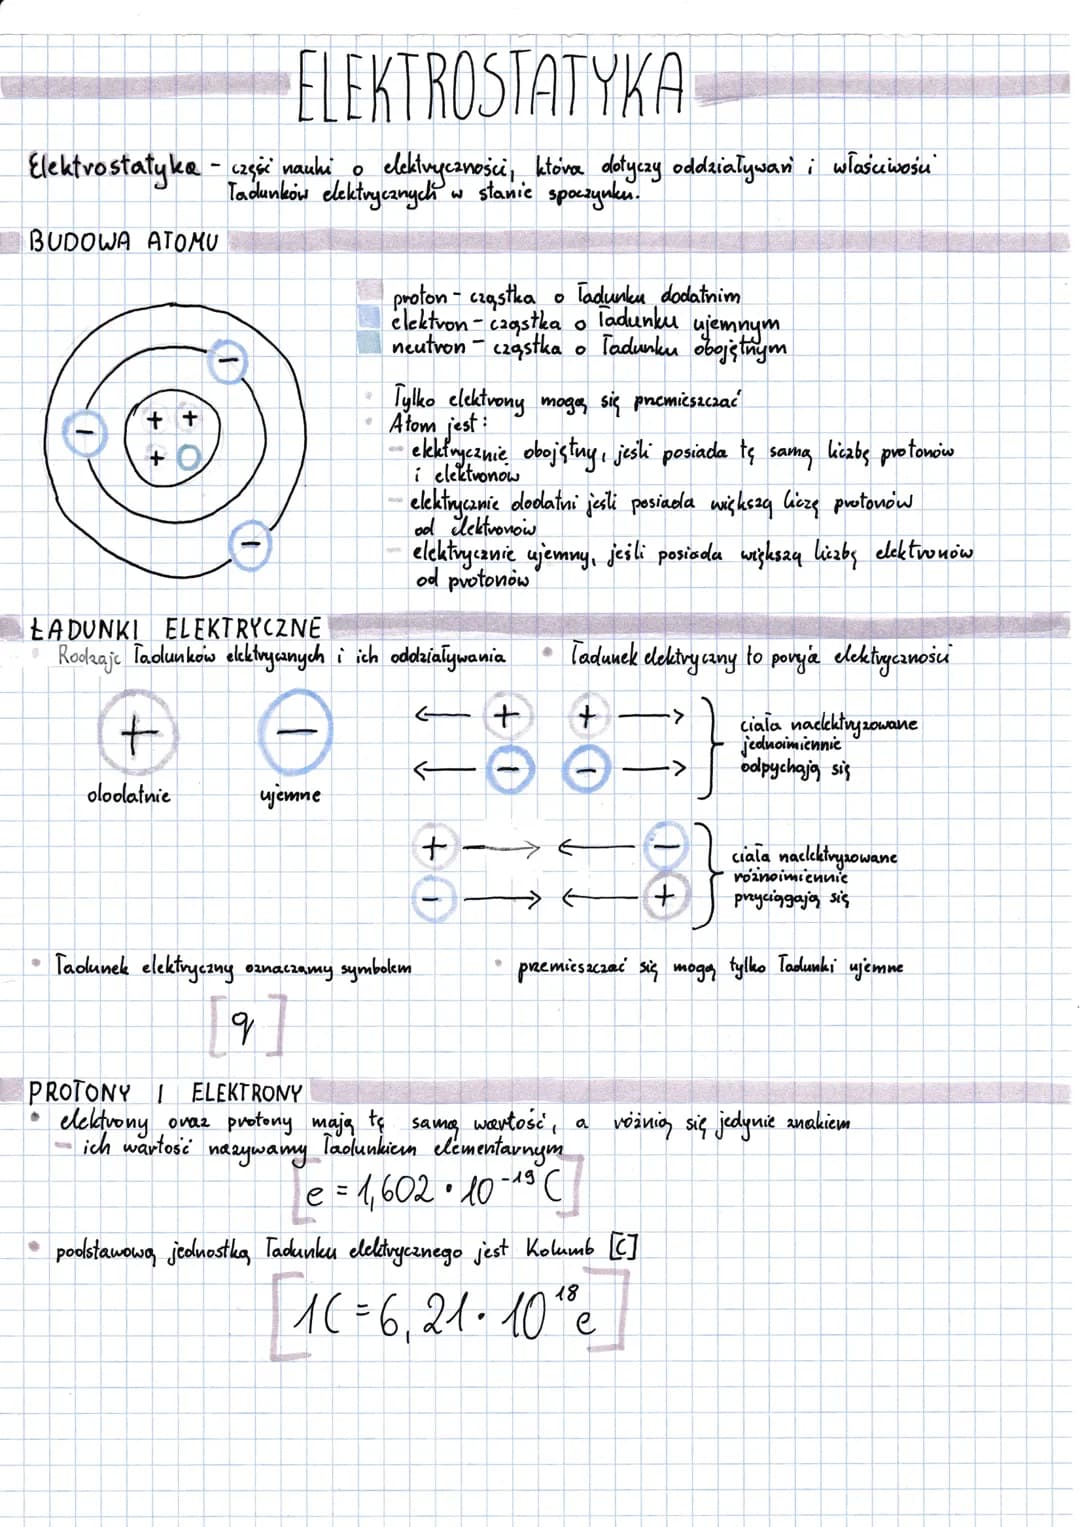 ELEKTROSTATYKA
Elektrostatyka - część nauki o elektryczności, która dotyczy oddziaływań i właściwości
ładunków elektrycznych w stanie spoczynku.
BUDOWA ATOMU
proton - cząstka o ładunku dodatnim
elektron - cząstka o ładunku ujemnym
neutron - cząstka o ładunku obojętnym
• Tylko elektrony mogą się przemieszczać
• Atom jest:
- elektrycznie obojętny, jeśli posiada tę samą liczbę protonów
i elektronów
- elektrycznie dodatni jeśli posiada większą liczę protonów
od elektronów
- elektrycznie ujemny, jeśli posiada większą liczbę elektronów
od protonów
-
-
-
+ +
+
ŁADUNKI ELEKTRYCZNE
• Rodzaje ładunków elektrycznych i ich oddziaływania
• ładunek elektryczny to porcja elektryczności
+ -
dodatnie ujemne
← + + →
← - - →
ciała naelektryzowane
jednoimiennie
odpychają się
+ → ← -
- → ← +
ciała naelektryzowane
różnoimiennie
przyciągają się
• ładunek elektryczny oznaczamy symbolem
[q]
• przemieszczać się mogą tylko ładunki ujemne
PROTONY I ELEKTRONY
• elektrony oraz protony mają tę samą wartość, a różnią się jedynie znakiem
- ich wartość nazywamy ładunkiem elementarnym
[e = 1,602 • 10⁻¹⁹ C]
• podstawową jednostką ładunku elektrycznego jest Kolumb [C]
[1C = 6,21 • 10¹⁸ e]